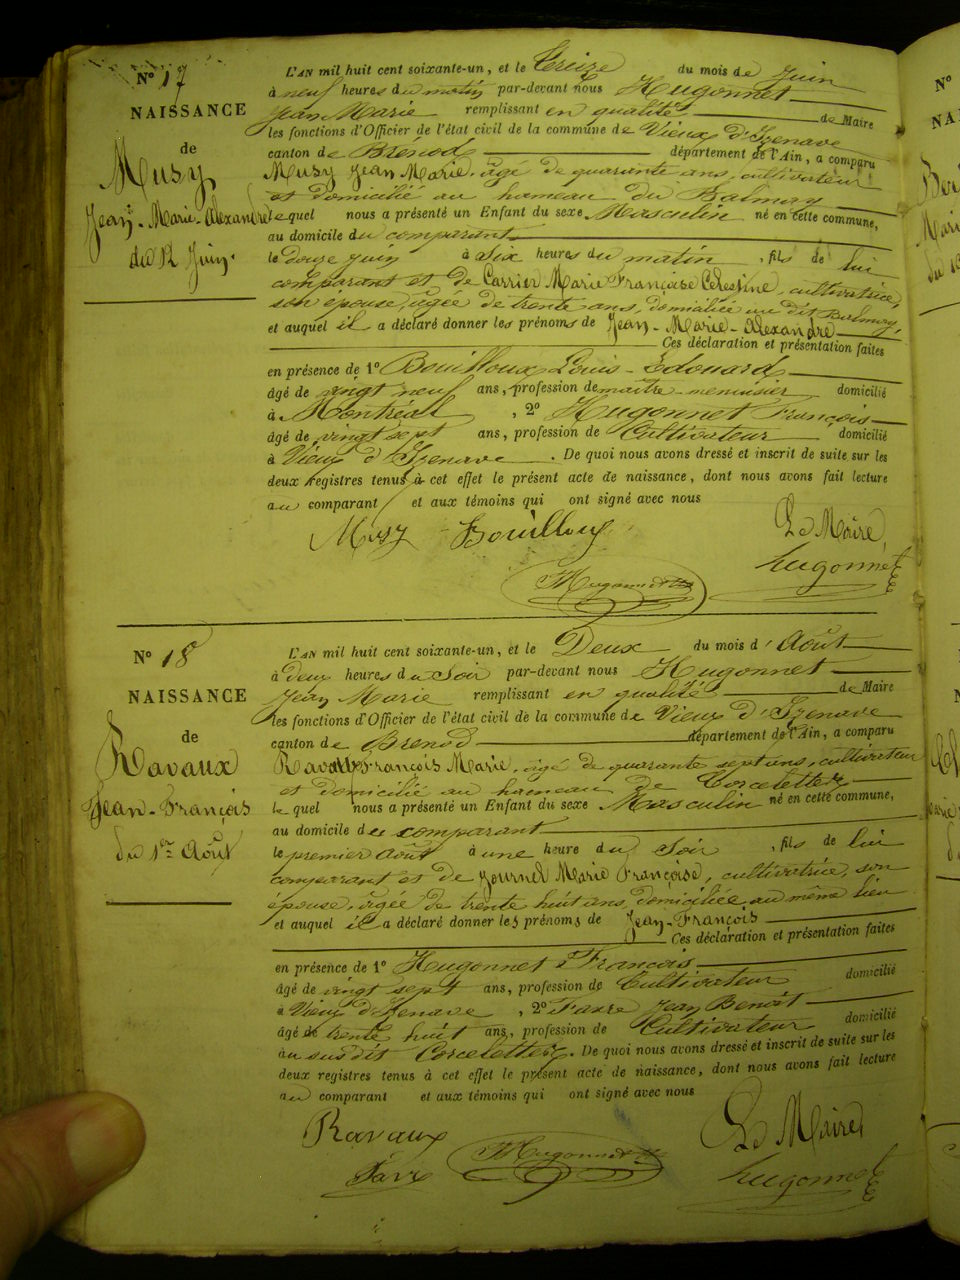 N° 17
NAISSANCE
de
Musy
Jean-Marie-Alexandre
du 12 Juin.
L'AN mil huit cent soixante-un, et le Treize du mois de Juin
à neuf heures du matin par-devant nous Hugonnet
Jean Marie remplissant en qualité de Maire
les fonctions d'Officier de l'état civil de la commune de Vieux d'Izenave
canton de Brénod département de l'Ain, a comparu
Musy Jean Marie, âgé de quarante ans, cultivateur
et domicilié au hameau du Balmay
lequel nous a présenté un Enfant du sexe Masculin né en cette commune,
au domicile du comparant
le douze juin à Six heures du matin, fils de lui
comparant et de Carrier Marie Françoise Célestine, cultivatrice,
son épouse, âgée de trente ans, domiciliée au dit Balmay,
et auquel il a déclaré donner les prénoms de Jean-Marie-Alexandre
Ces déclaration et présentation faites
en présence de 1° Bouilloux Louis-Edouard
âgé de vingt neuf ans, profession de maître-menuisier domicilié
à Montréal, 2° Hugonnet François
âgé de vingt sept ans, profession de Cultivateur domicilié
à Vieux d'Izenave. De quoi nous avons dressé et inscrit de suite sur les
deux registres tenus à cet effet le présent acte de naissance, dont nous avons fait lecture
au comparant et aux témoins qui ont signé avec nous
Musy Bouilloux Le Maire,
Hugonnet hugonnet
N° 18
NAISSANCE
de
Ravaux
Jean-François
du 1er Août
L'AN mil huit cent soixante-un, et le Deux du mois d'Août
à deux heures du Soir par-devant nous Hugonnet
Jean Marie remplissant en qualité de Maire
les fonctions d'Officier de l'état civil de la commune de Vieux d'Izenave
canton de Brenod département de l'Ain, a comparu
Ravaux François Marie, âgé de quarante sept ans, cultivateur
et domicilié au hameau de Corcelettes
le quel nous a présenté un Enfant du sexe Masculin né en cette commune,
au domicile du comparant
le premier Août à une heure du Soir, fils de lui
comparant et de Journet Marie Françoise, cultivatrice, son
épouse, âgée de trente huit ans, domiciliée au même lieu
et auquel il a déclaré donner les prénoms de Jean-François
Ces déclaration et présentation faites
en présence de 1° Hugonnet François
âgé de vingt sept ans, profession de Cultivateur domicilié
à Vieux d'Izenave, 2° Favre Jean Benoit
âgé de trente huit ans, profession de Cultivateur domicilié
au susdit Corcelettes. De quoi nous avons dressé et inscrit de suite sur les
deux registres tenus à cet effet le présent acte de naissance, dont nous avons fait lecture
au comparant et aux témoins qui ont signé avec nous
Ravaux Le Maire,
Favre Hugonnet hugonnet